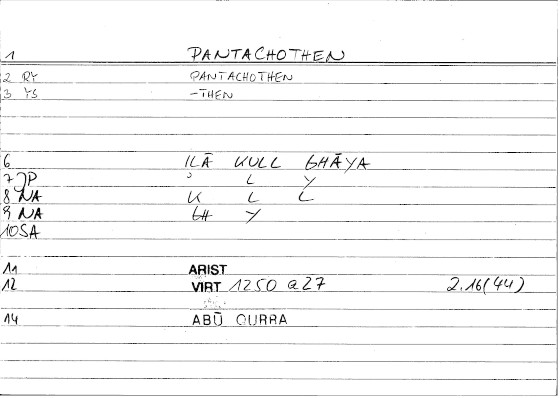 1 PANTACHOTHEN
2 RY PANTACHOTHEN
3 YS -THEN
6 ILĀ KULL GHĀYA
7 JP ' L Y
8 NA K L L
9 NA GH Y
10 SA
11 ARIST
12 VIRT 1250 a27 2.16(44)
14 ABŪ QURRA